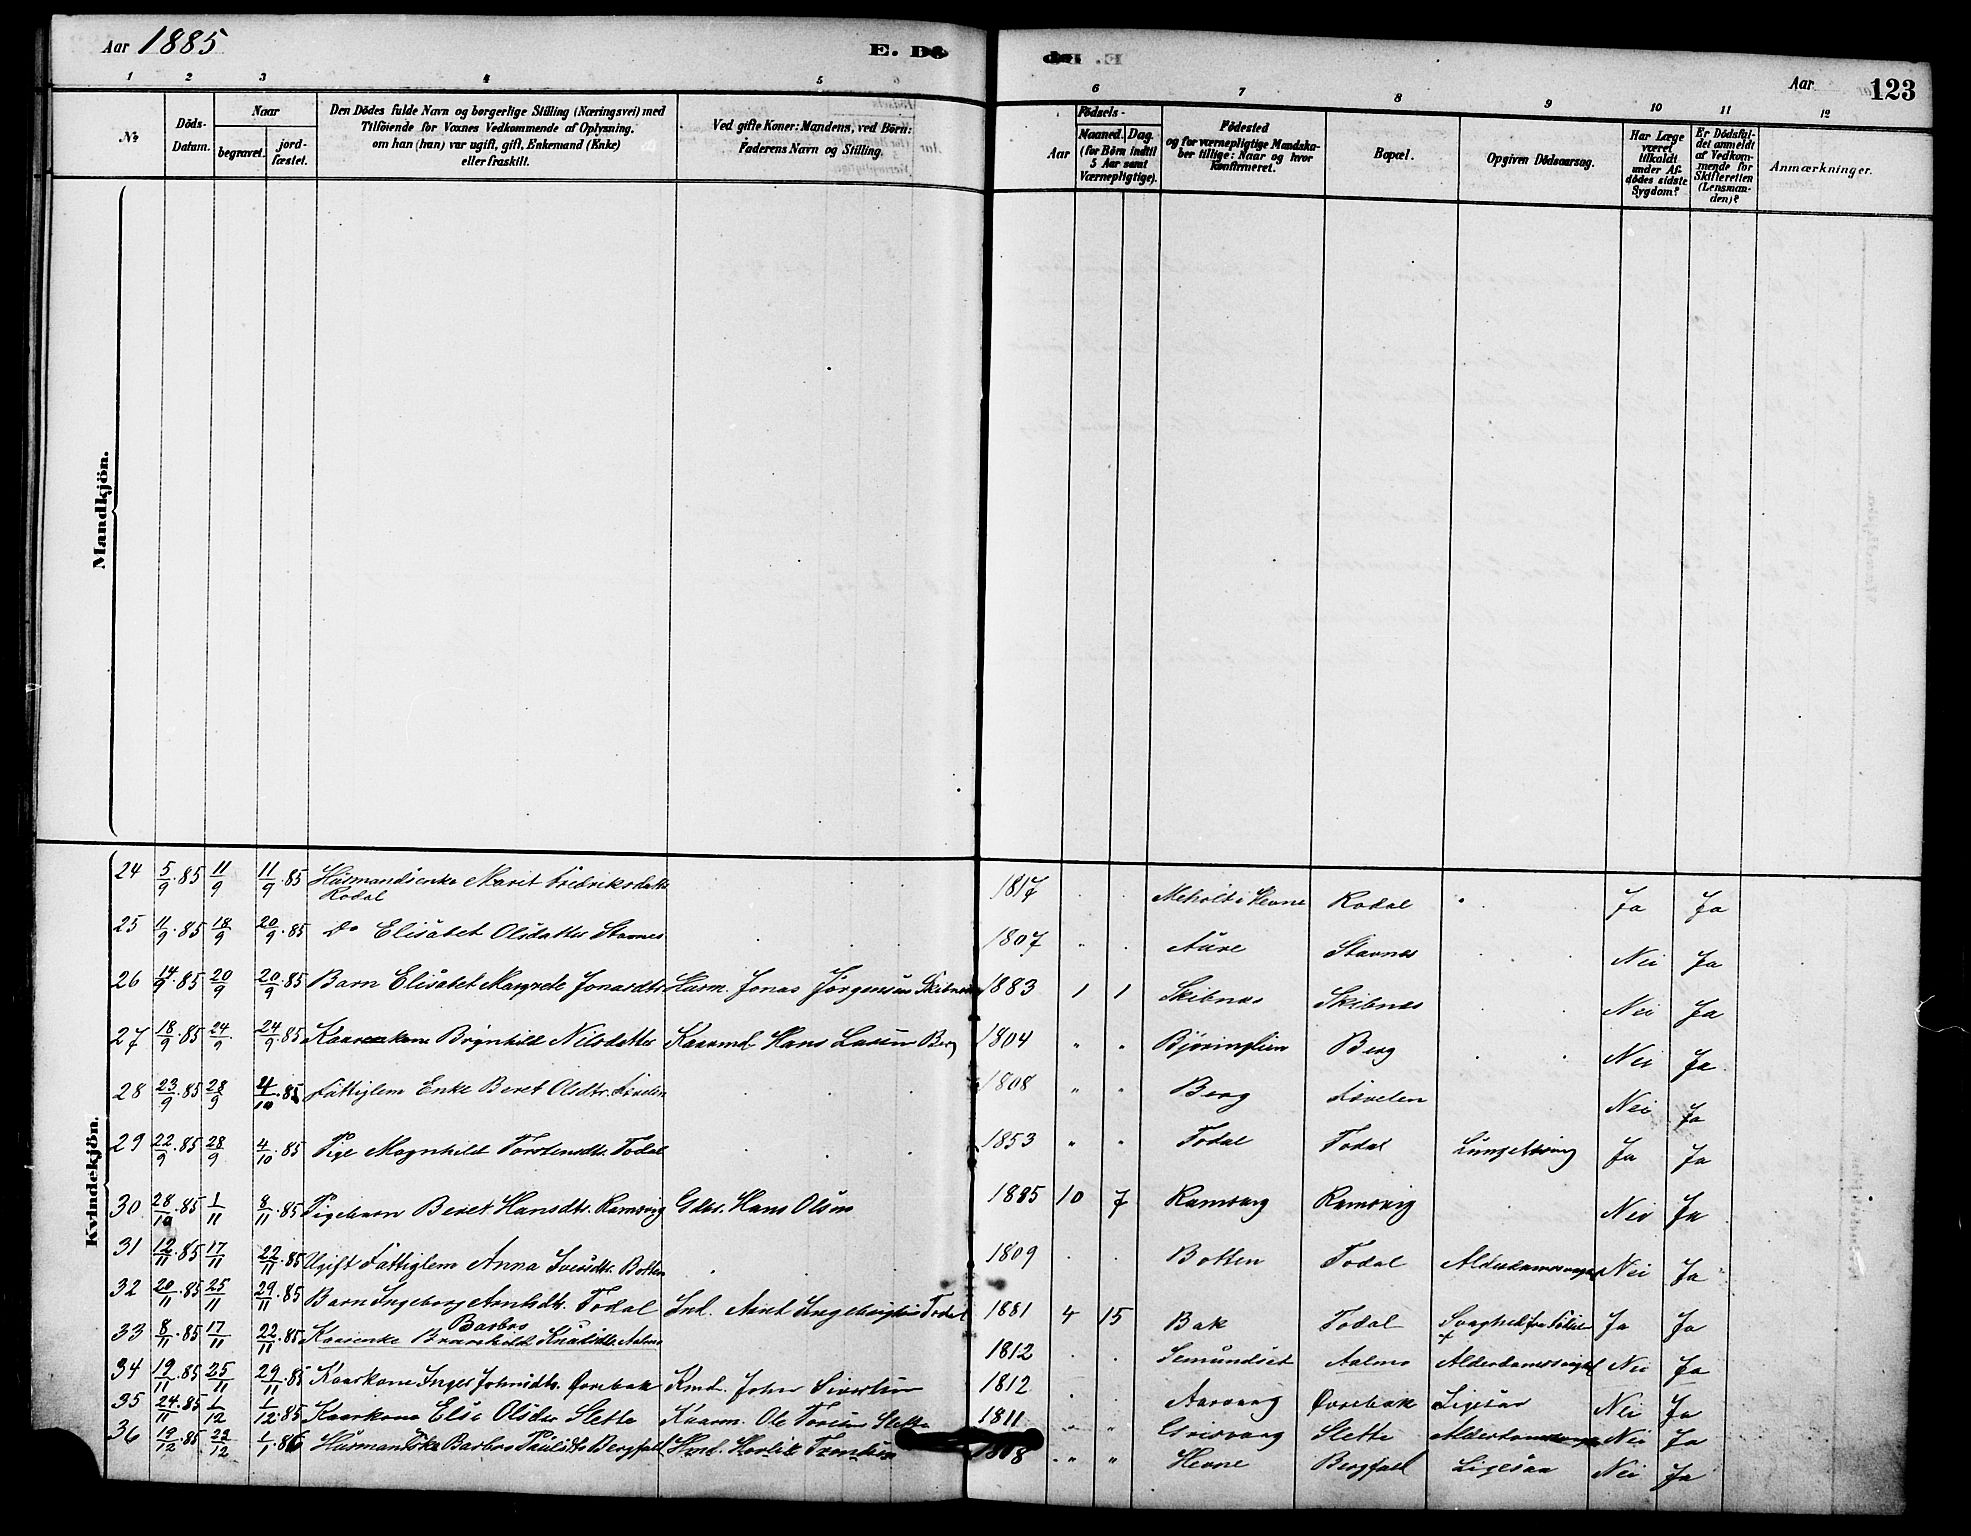 Aar 1885 E. Dö
E. Dö Aar 123
1 2 3 4 5 6 7 8 9 10 11 12
№
Döds-Datum.
Naar
begravet.
jord-fæstet.
Den Dödes fulde Navn og borgerlige Stilling (Næringsvei) med
Tilföiende for Voxnes Vedkommende af Oplysning.
om han (hun) var ugift, gift, Enkemand (Enke)
eller fraskilt.
Ved gifte Koner: Mandens, ved Börn:
Faderens Navn og Stilling.
Födsels-
Aar
Maaned. Dag.
(for Börn indtil
5 Aar samt
Værnepligtige).
Födested
og for værnepligtige Mandska-
ber tillige: Naar og hvor
Konfirmeret.
Bopæl.
Opgiven Dödsaarsag.
Har Læge
været
tilkaldt
under Af-
dödes sidste
Sygdom?
Er Dödsfal-
det anmeldt
af Vedkom-
mende for
Skifteretten
(Lensman-
den)?
Anmærkninger.
Mandkjön.
Kvindekjön.
24 5/9.85 11/9 11/9.85 Husmandsenke Marit Fredriksdatter Rodal 1817 Rodal Ja Ja
25 11/9.85 18/9 20/9.85 Do Elisabet Olsdatter Stavnes 1807 Aure Stavnes Nei Ja
26 14/9.85 20/9 20/9.85 Barn Elisabet Margrete Jonasdtr Husm. Jonas Jørgensen Skibnes 1883 1 1 Skibnes Skibnes Nei Ja
27 18/9.85 24/9 24/9.85 Kaarkone Brynhild Nilsdatter Kaarmd Hans Larsen Berg 1804 " " Berg Nei Ja
28 23/9.85 28/9 4/10.85 Fattiglem Enke Beret Olsdtr. 1808 " " Berg Nei Ja
29 22/9.85 28/9 4/10.85 Pige Magnhild Torstensdtr. Todal 1853 " " Todal Todal Ja Ja
30 28/10.85 1/11 8/11.85 Pigebarn Beret Hansdtr. Ramsvig Gdbr. Hans Olsen 1885 10 7 Ramsvig Ramsvig Nei Ja
31 12/11.85 17/11 22/11.85 Ugift Fattiglem Anna Iversdtr. Botten 1809 Botten Todal Alderdomssvaghed Nei Ja
32 20/11.85 25/11 29/11.85 Barn Ingeborg Arntsdtr. Todal Ind. Arnt Ingebrigtsen Todal 1881 4 15 Bak Todal Svaghed fra Fødsel Ja Ja
33 8/11.85 17/11 22/11.85 Kaarenke Barbro Knutsdtr. Aalmo 1812 Semundset Aalmo Alderdomssvaghed Nei Ja
34 19/11.85 25/11 29/11.85 Kaarkone Inger Johnsdtr. Øvrebak Kmd. John Sivertsen 1812 Aarvaag Øvrebak Ligesaa Nei Ja
35 24/11.85 1/12 1/12.85 Kaarkone Else Olsdtr Slette Kaarm. Ole Toresen Slette 1811 " Grisvaag Slette Alderdomssvaghed Nei Ja
36 19/12.85 29/12 1/1.86 Husmandske Barbro Paulsdtr Bergfall Hmd. 1808 " " Hevne Bergfall Ligesaa Nei Ja